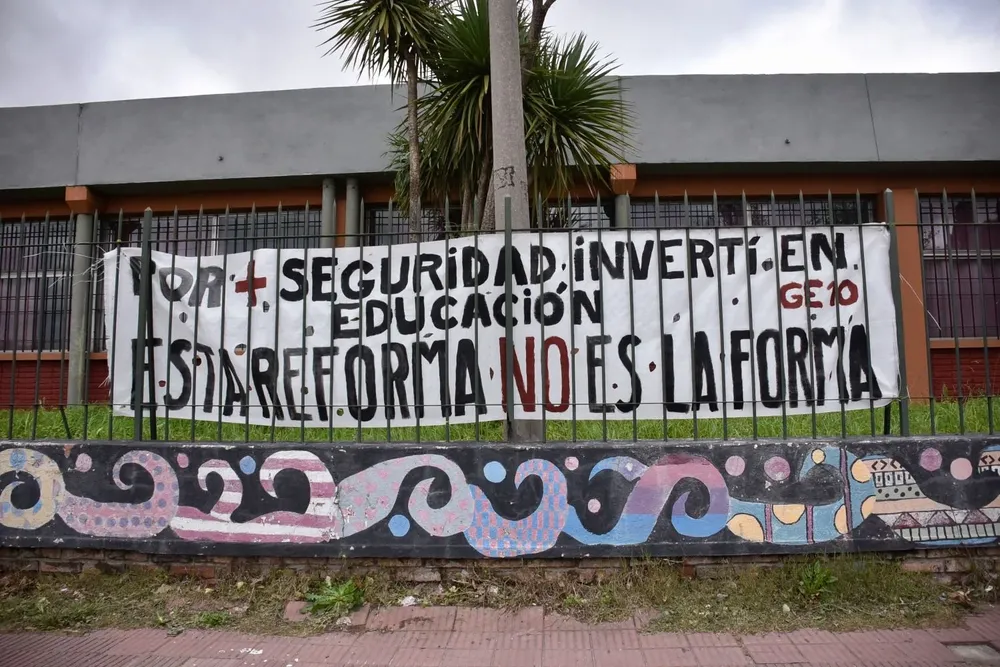 POR + SEGURIDAD INVERTÍ EN
EDUCACIÓN GE10
ESTA REFORMA NO ES LA FORMA